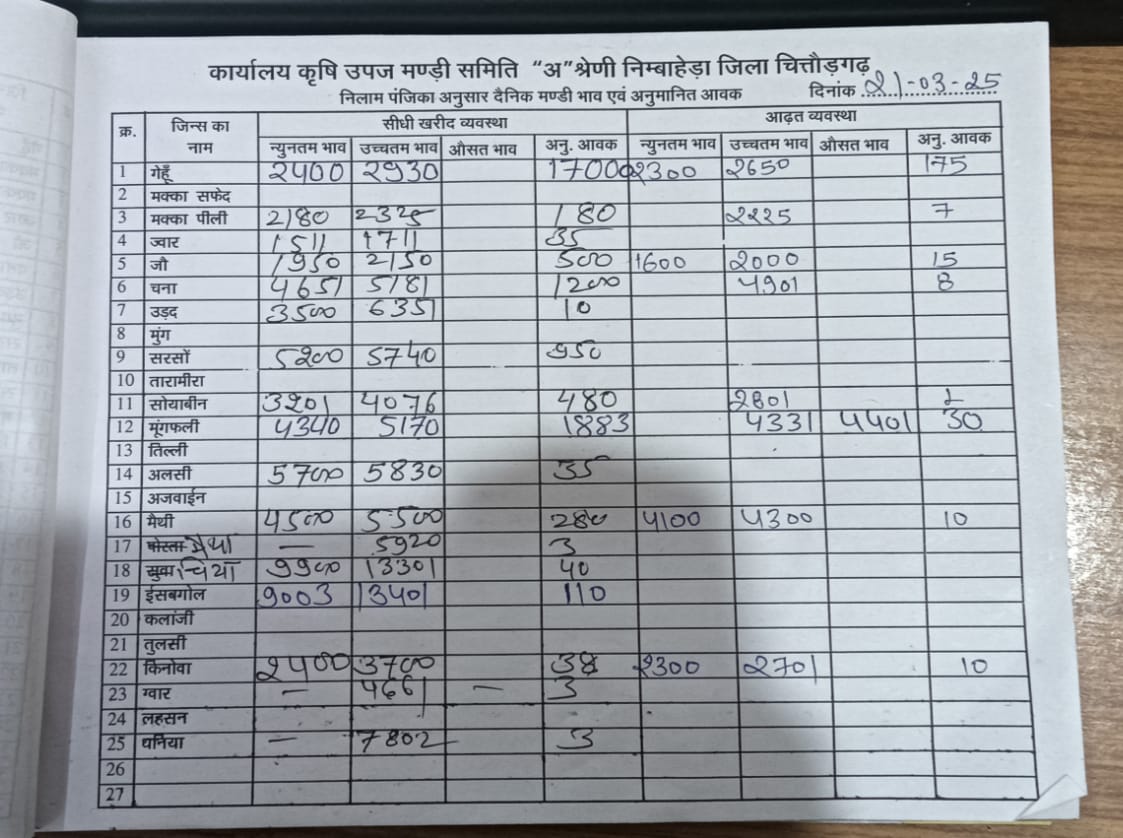 कार्यालय कृषि उपज मण्ड़ी समिति "अ"श्रेणी निम्बाहेड़ा जिला चित्तौड़गढ़
निलाम पंजिका अनुसार दैनिक मण्डी भाव एवं अनुमानित आवक दिनांक 21-03-25
क्र. जिन्स का नाम सीधी खरीद व्यवस्था आढ़त व्यवस्था
न्युनतम भाव उच्चतम भाव औसत भाव अनु. आवक न्युनतम भाव उच्चतम भाव औसत भाव अनु. आवक
1 गेहूँ 2400 2930 17000 2300 2650 175
2 मक्का सफेद
3 मक्का पीली 2180 2325 180 2225 7
4 ज्वार 1511 1711 35
5 जौ 1950 2150 500 1600 2000 15
6 चना 4651 5181 1200 4901 8
7 उड़द 3500 6351 10
8 मुंग
9 सरसों 5200 5740 950
10 तारामीरा
11 सोयाबीन 3201 4076 480 2801
12 मूंगफली 4340 5170 1883 4331 4401 30
13 तिल्ली
14 अलसी 5700 5830 35
15 अजवाईन
16 मैथी 4500 5500 280 4100 4300 10
17 — 5920 3
18 चिया 9900 13301 40
19 ईसबगोल 9003 13401 110
20 कलांजी
21 तुलसी
22 किनोवा 2400 3700 38 2300 2701 10
23 ग्वार — 4661 — 3
24 लहसन
25 धनिया — 7802 3
26
27